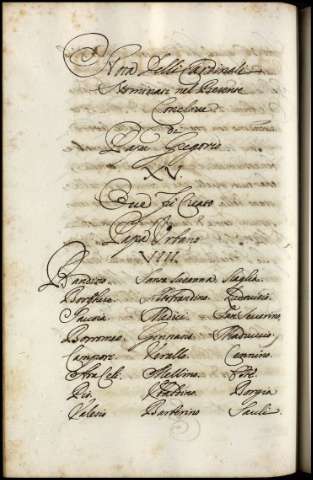 Nota delli Cardinali
Nominati nel Presente
Conclave
di
Papa Gregorio
XV
Ove fù Creato
Papa Urbano
VIII.
Bandino. Santa Susanna Scaglia.
Borghese. Aldobrandino. Ludovisio.
Medici. San Severino.
Borromeo. Ginnasio. Madruccio.
Campora. Verallo. Cennino.
Ara Celi. Mellino.
Pio. Ubaldino. Borgia
Valerio Barberino Sauli.